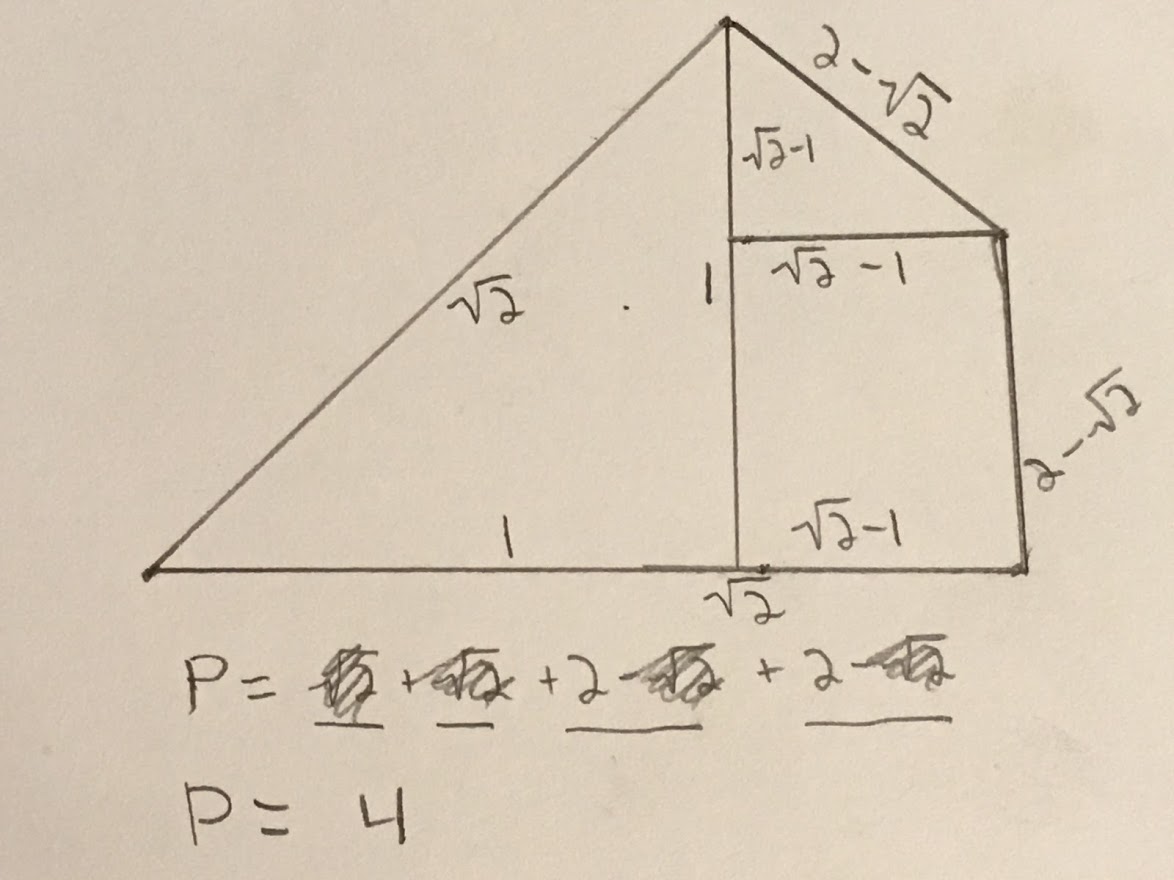 2 - √2
√2 - 1
√2 - 1
√2
1
2 - √2
1
√2 - 1
√2
P = √2 + √2 + 2 - √2 + 2 - √2
P = 4